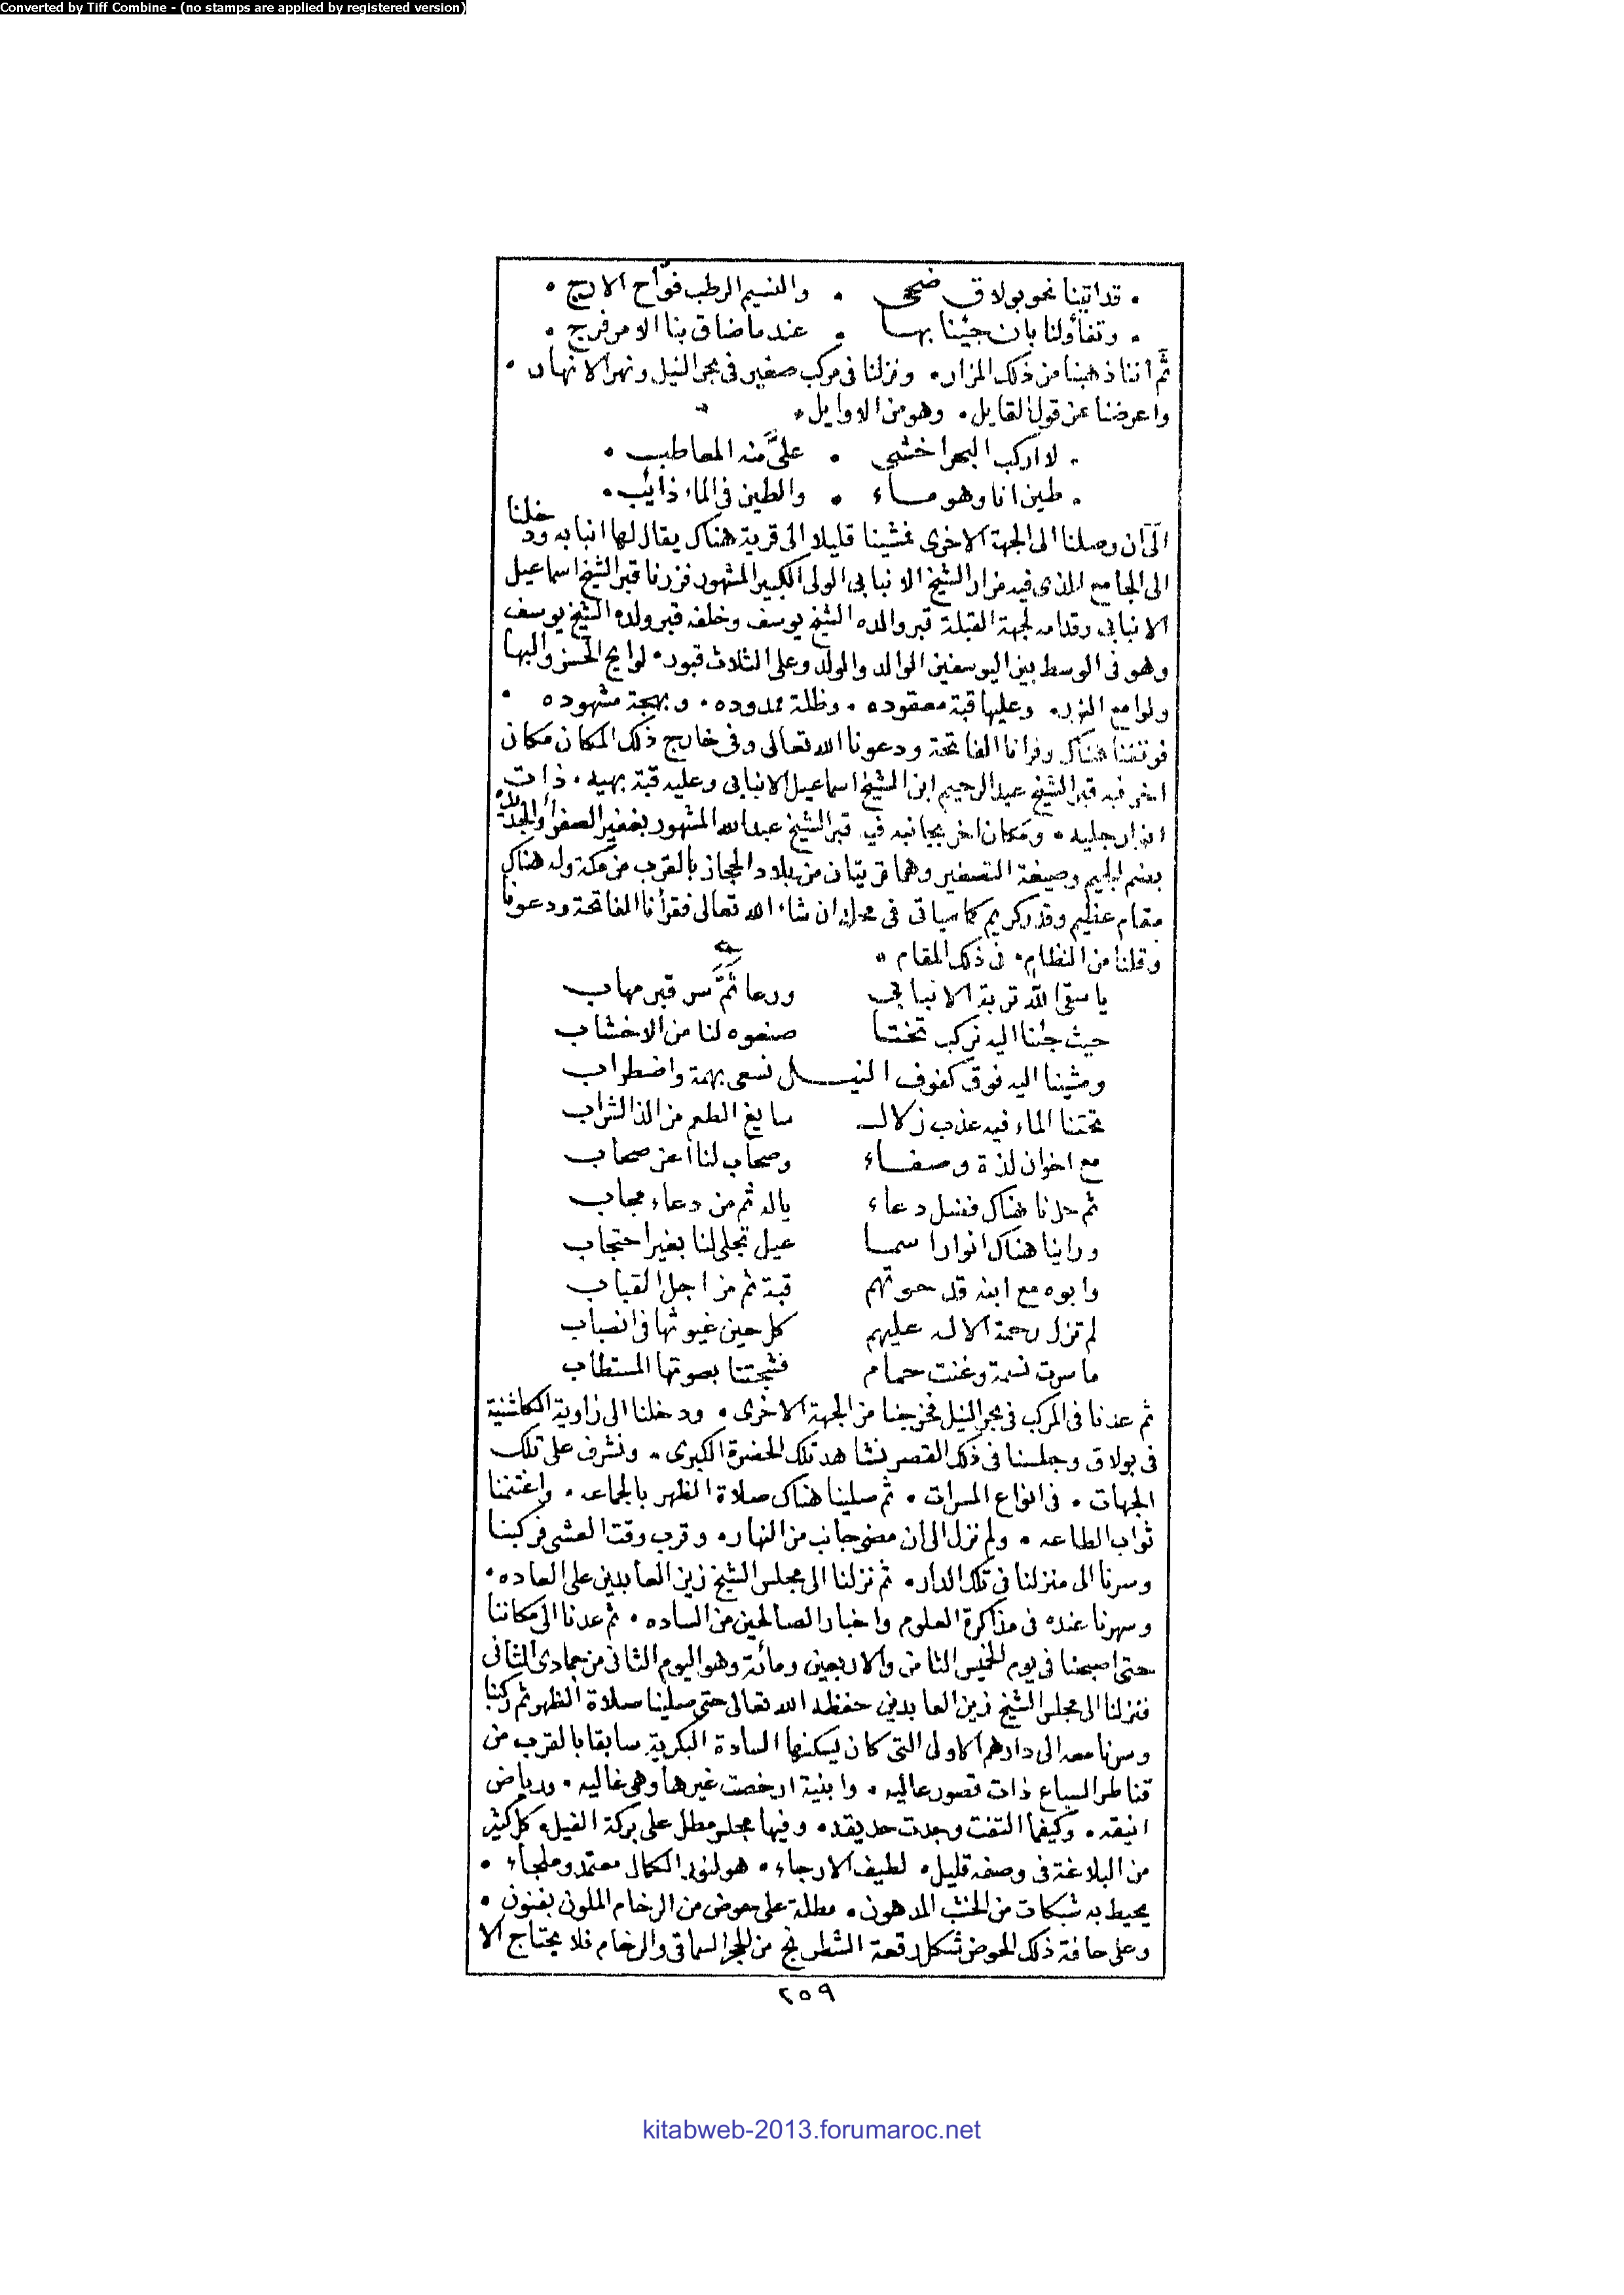 Converted by Tiff Combine - (no stamps are applied by registered version)
• قد اتينا نحو بولاق ضحى • والنسيم الرطب فوّاح الاريج •
• وتفأولنا بان جئنا بها • عند ما ضاق بنا الامر فريج •
ثم اننا ذهبنا من ذلك المزار • ونزلنا فى مركب صغير فى بحر النيل ونهر الانهار •
واعرضنا عن قول القايل • وهو من الاوايل •
• لا اركب البحر اخشى • علىَّ منه المعاطب •
• طين انا وهو ماء • والطين فى الماء ذائب •
الى ان وصلنا الى الجهة الاخرى فمشينا قليلا الى قرية هناك يقال لها انبابه ودخلنا
الى الجامع الذى فيه مزار الشيخ الانبابى الولى الكبير المشهور فزرنا قبر الشيخ اسماعيل
الانبابى وقدامه لجهة القبلة قبر والده الشيخ يوسف وخلفه قبر ولده الشيخ يوسف
وهو فى الوسط بين اليوسفين الوالد والولد وعلى الثلاث قبور • لوايح الحسن والبها
ولوامع النور • وعليها قبة معقوده • وظلة ممدوده • وبهجة مشهوده •
فوقفنا هناك وقرانا الفاتحة ودعونا الله تعالى وفى خارج ذلك المكان مكان
اخر فيه قبر الشيخ عبد الرحيم ابن الشيخ اسماعيل الانبابى وعليه قبة بهيه • ذات
انوار جليه • ومكان اخر بجانبه فيه قبر الشيخ عبد الله المشهور بخفير الصفرا والجديدة
بضم الجيم وصيغة التصغير وهما قريتان من بلاد الحجاز بالقرب من مكة وله هناك
مقام عظيم وقدر كريم كما سياتى فى محله ان شاء الله تعالى فقرأنا الفاتحة ودعونا
وقلنا من النظام • فى ذلك المقام •
يا سقى الله تربة الانبابى ورعا ثَمَّ سر قبر مهاب
حيث جئنا اليه نركب تختا صنعوه لنا من الاخشاب
ومشينا اليه فوق كفوف النيــل نسعى بهمة واضطراب
تحتنا الماء فيه عذب زلال سايغ الطعم من الذ الشراب
مع اخوان لذة وصفاء وصحاب لنا اعز صحاب
ثم حزنا هناك فضل دعاء ياله ثم من دعاء مجاب
وراينا هناك انوارا سما عيل تجلى لنا بغير احتجاب
وابوه مع ابنه قد حوتهم قبة ثم من اجل القباب
لم تزل رحمة الاله عليهم كل حين غيوثها فى انصباب
ما سرت نسمة وغنت حمام فشجتنا بصوتها المستطاب
ثم عدنا فى المركب فى بحر النيل فخرجنا من الجهة الاخرى • ودخلنا الى زاوية الكاشنية
فى بولاق وجلسنا فى ذلك القصر نشاهد تلك الحضرة الكبرى • ونشرف على تلك
الجهات • فى انواع المسرات • ثم صلينا هناك صلاة الظهر بالجماعه • واغتنمنا
ثواب الطاعه • ولم نزل الى ان مضى جانب من النهار • وقرب وقت العشى فركبنا
وسرنا الى منزلنا فى تلك الدار • ثم نزلنا الى مجلس الشيخ زين العابدين على العاده •
وسهرنا عنده فى مذاكرة العلوم واخبار الصالحين من الساده • ثم عدنا الى مكاننا
حتى اصبحنا فى يوم الخميس الثامن والاربعين ومائة وهو اليوم الثانى من جمادى الثانى
فنزلنا الى مجلس الشيخ زين العابدين حفظه الله تعالى حتى صلينا صلاة الظهر ثم ركبنا
وسرنا معه الى دارهم الاولى التى كان يسكنها السادة البكرية سابقا بالقرب من
قناطر السباع ذات قصور عاليه • وابنية ارخصت غيرها وهى غاليه • ورياض
انيقه • وكيفما التفت وجدت حديقه • وفيها مجلس مطل على بركة الفيل • كل كثير
من البلاغة فى وصفه قليل • لطيف الارجاء • هو لنور الكمال معتمد وملجاء •
يحيط به شبكات من الخشب المدهون • مطلة على حوض من الرخام الملون بفنون •
وعلى حافة ذلك الحوض شكل رقعة الشطرنج من الحجر السماقى والرخام فلا يحتاج الا
٢٥٩
kitabweb-2013.forumaroc.net